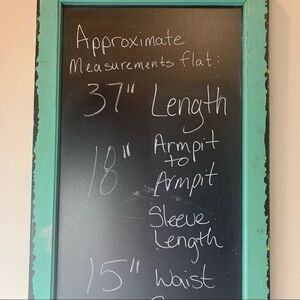 Approximate
Measurements flat:
37" Length
18" Armpit
to
Armpit
Sleeve
Length
15" Waist